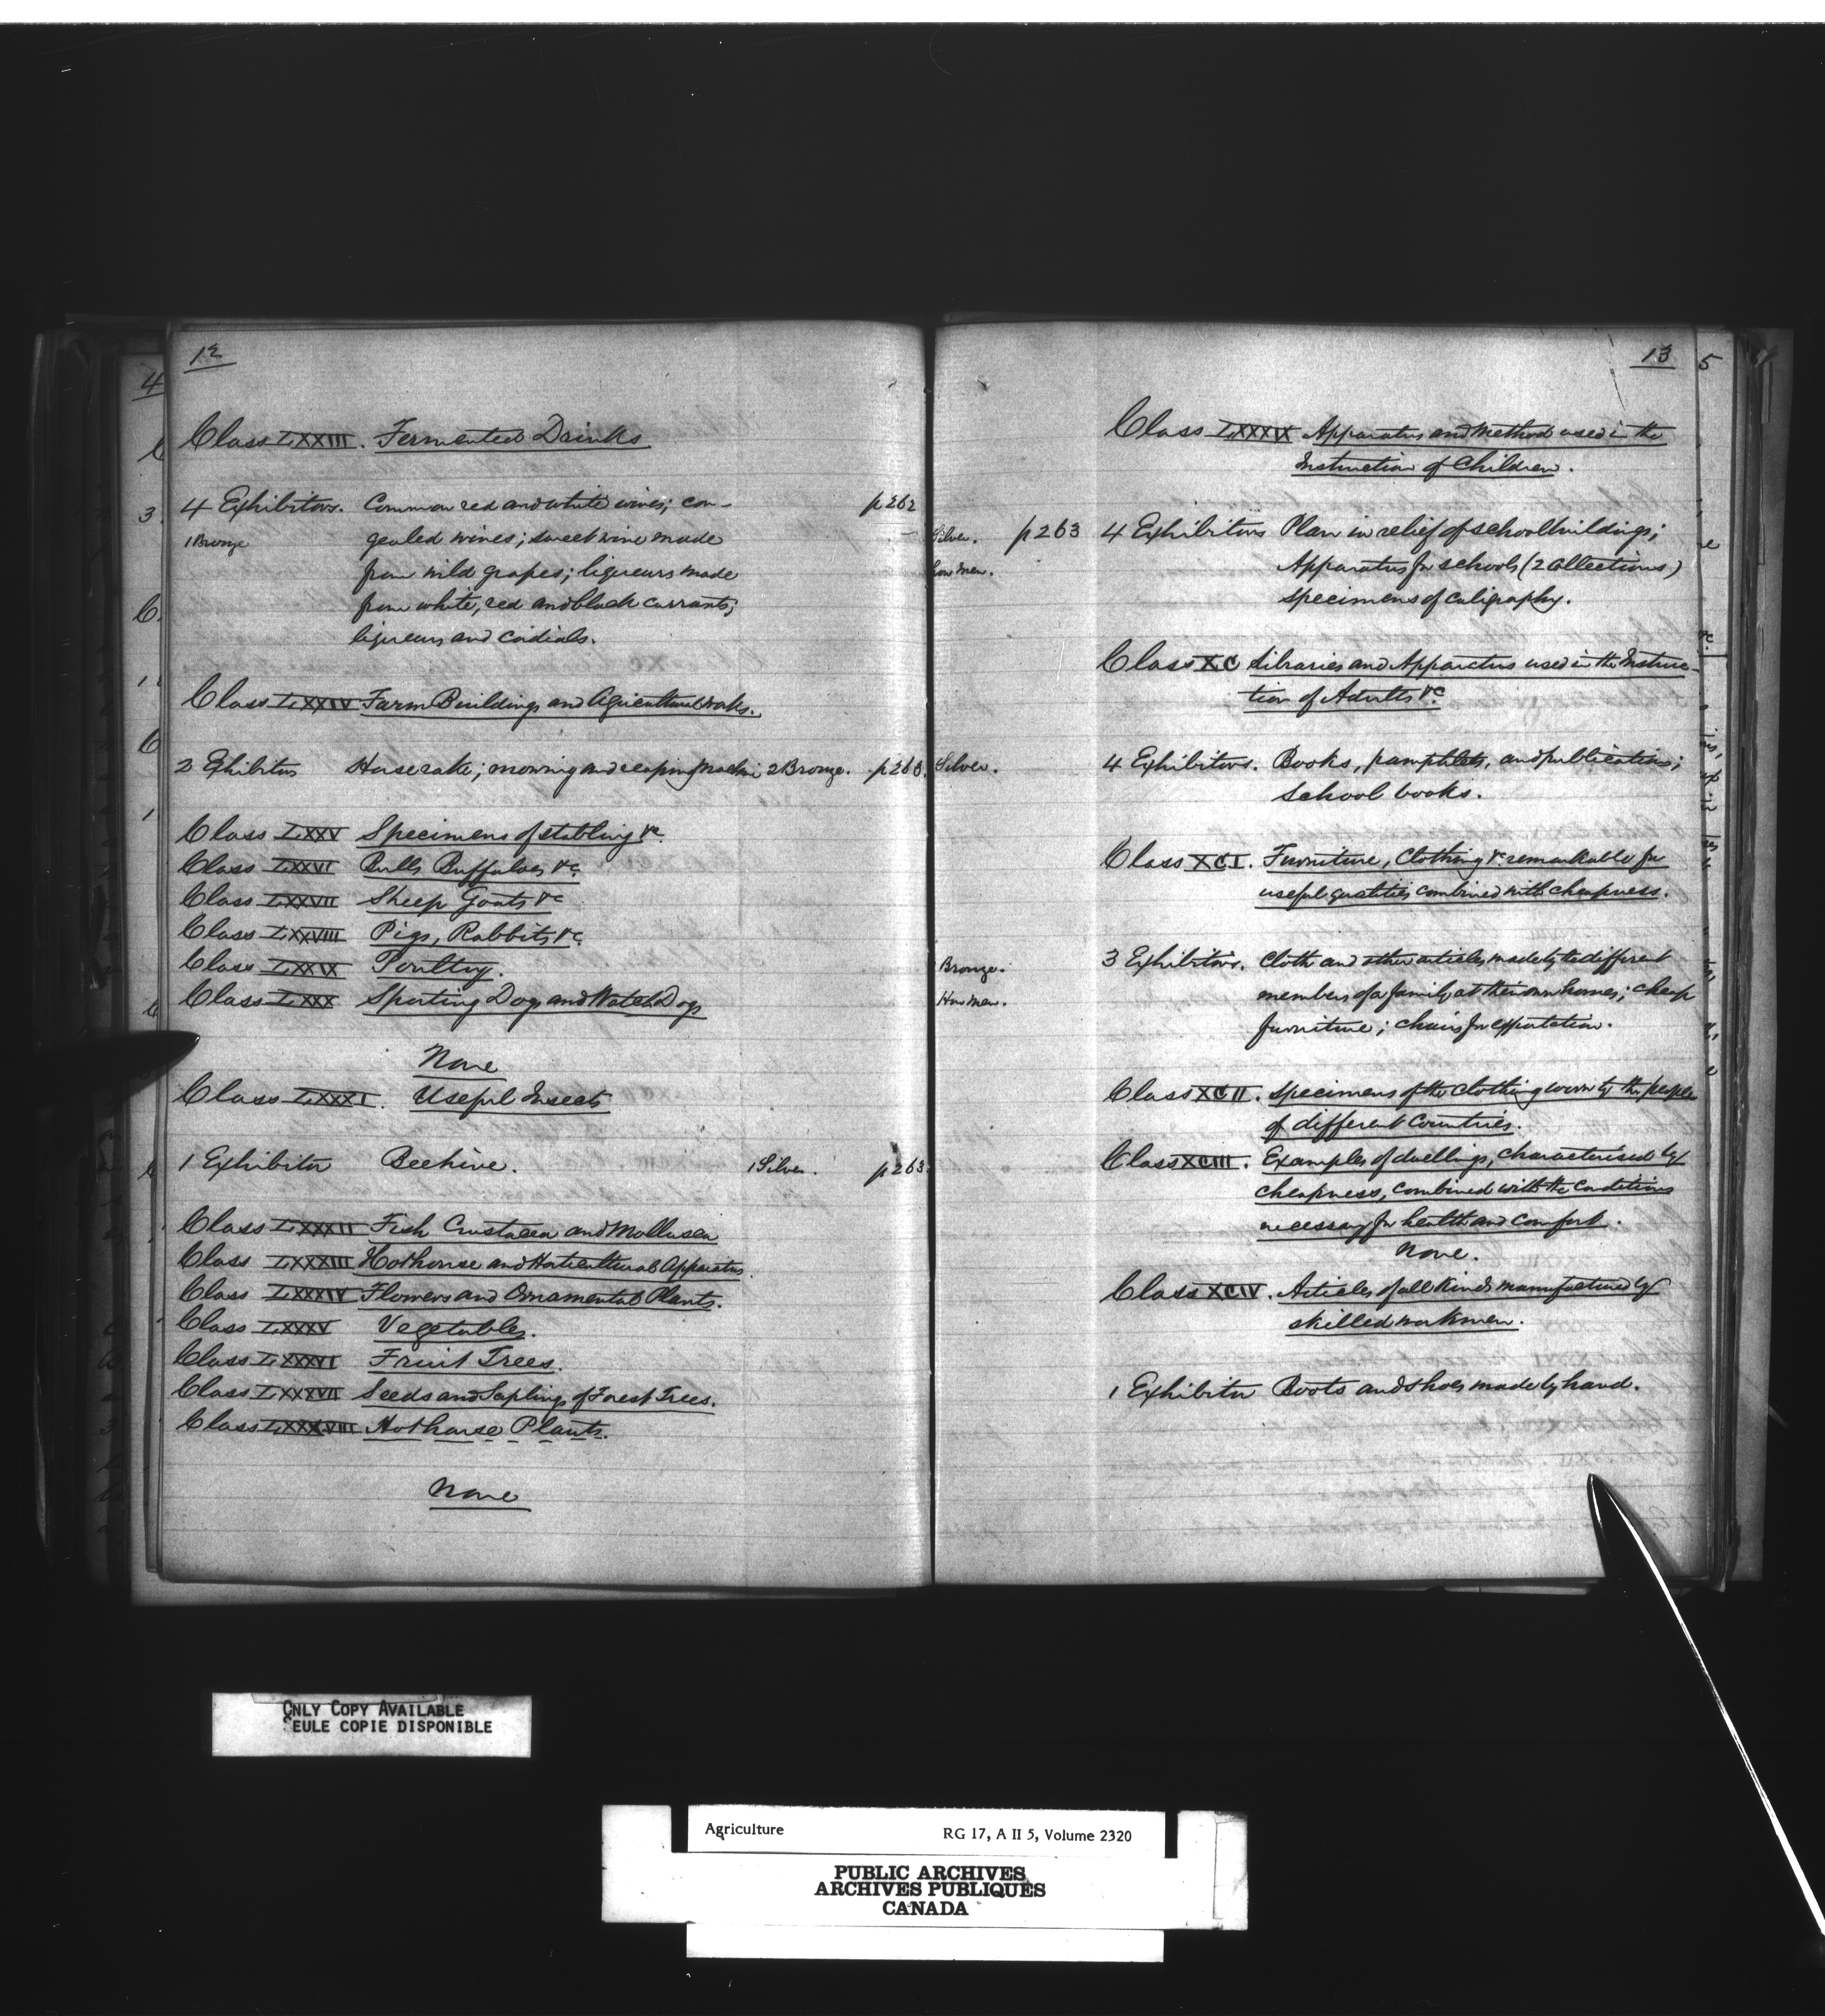 12
Class LXXIII. Fermented Drinks
4 Exhibitors. Common red and white wines; con- p 262
1 Bronze gealed wines; sweet wine made
from wild grapes; liqueurs made
from white, red and black currants;
liqueurs and cordials.
Class LXXIV Farm Buildings and Agricultural works.
2 Exhibitors Horse rake; mowing and reaping machine 2 Bronze. p 263.
Class LXXV Specimens of stabling &c
Class LXXVI Bulls Buffaloes &c
Class LXXVII Sheep Goats &c
Class LXXVIII Pigs, Rabbits &c
Class LXXIX Poultry.
Class LXXX Sporting Dogs and Watch Dogs
None
Class LXXXI. Useful Insects
1 Exhibitor Beehive. 1 Silver. p 263
Class LXXXII Fish Crustacea and Mollusca
Class LXXXIII Hothouse and Horticultural Apparatus.
Class LXXXIV Flowers and Ornamental Plants.
Class LXXXV Vegetables.
Class LXXXVI Fruit Trees.
Class LXXXVII Seeds and Saplings of Forest Trees.
Class LXXXVIII Hothouse Plants.
None
13
Class LXXXIX Apparatus and Method used in the
Instruction of Children.
Silver. p 263 4 Exhibitors Plan in relief of school buildings;
Hon Men. Apparatus for schools (2 collections)
specimens of caligraphy.
Class XC Libraries and Apparatus used in the Instruc-
tion of Adults &c.
Silver. 4 Exhibitors. Books, pamphlets, and publications;
School books.
Class XCI. Furniture, Clothing &c remarkable for
useful qualities combined with cheapness.
Bronze. 3 Exhibitors. Cloth and other articles made by the different
Hon Men. members of a family at their own homes; cheap
furniture; chairs for exportation.
Class XCII. Specimens of the clothing worn by the people
of different Countries.
Class XCIII. Examples of dwellings, characterised by
cheapness, combined with the Conditions
necessary for health and comfort.
None.
Class XCIV. Articles of all kinds manufactured by
skilled workmen.
1 Exhibitor Boots and shoes made by hand.
4
5
ONLY COPY AVAILABLE
SEULE COPIE DISPONIBLE
Agriculture RG 17, A II 5, Volume 2320
PUBLIC ARCHIVES
ARCHIVES PUBLIQUES
CANADA